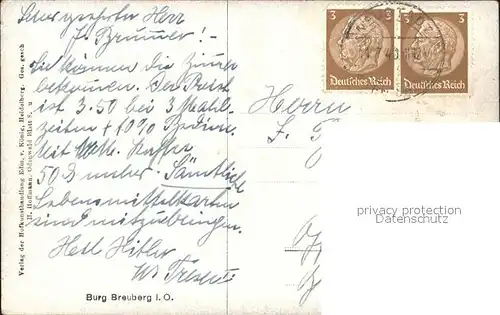 Sehr geehrter Herr
L. Brunner!
Sie können die Zimmer
bekommen. Der Preis
ist 3.50 bei 3 Mahl-
zeiten + 10% Bedien.
Mit Kaffee
50 ₰ mehr. Sämtliche
Lebensmittelkarten
sind mitzubringen.
Heil Hitler
Burg Breuberg i. O.
Verlag der Hofkunsthandlung Edm. v. König, Heidelberg. Ges. gesch
H. Hoffmann, Odenwald Blatt 8.
3 3
Deutsches Reich
3
Deutsches Reich
Herrn
privacy protection
Datenschutz